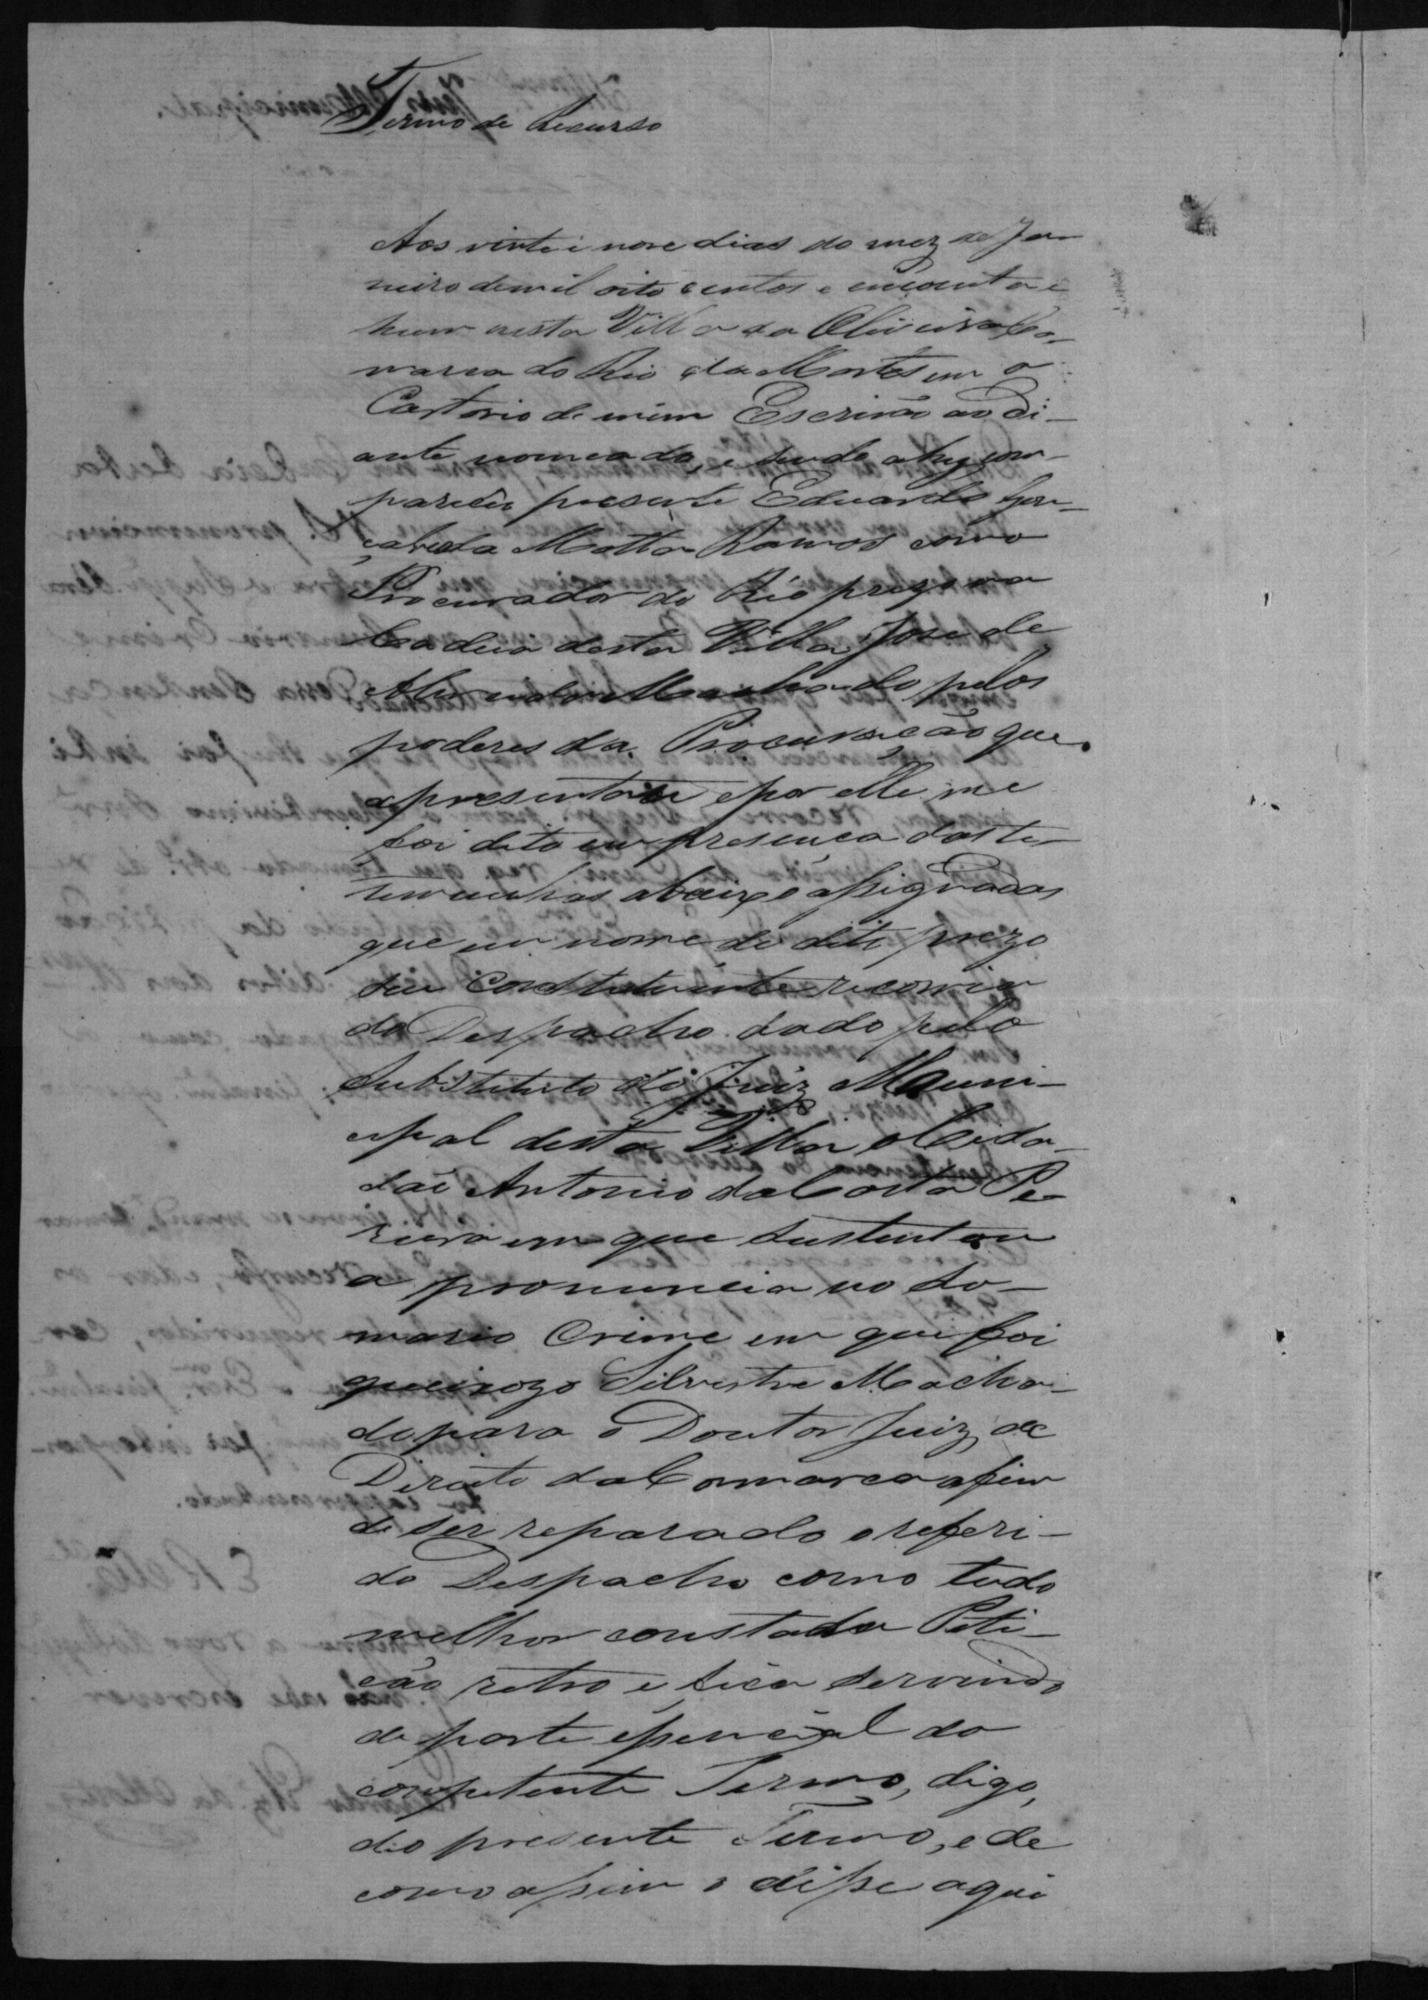 Termo de Recurso
Aos vinte e nove dias do mez de Ja-
neiro de mil oito centos e cincoenta e
hum nesta Villa da Oliveira Co-
marca do Rio das Mortes em o
Cartorio de mim Escrivão ao di-
ante nomeado, e sendo ahy com-
pareceu presente Eduardo Gon-
çalves da Motta Ramos como
Procurador do Réo prezo na
Cadeia desta Villa José de
Machado pelos
poderes da Procuração que
apresentou e por elle me
foi dito em presença das tes-
temunhas abaixo assignadas
que em nome do dito prezo
seu Constituinte recorria
do Despacho dado pelo
Substituto do Juiz Muni-
cipal desta Villa o Cida-
dão Antonio da Costa Pe-
reira em que sustentou
a pronuncia no Su-
mario Crime em que foi
queixozo Silvestre Macha-
do para o Doutor Juiz de
Direito da Comarca afim
de ser reparado o referi-
do Despacho como tudo
melhor consta da Peti-
ção retro e fica servindo
de parte essencial do
competente Termo, digo,
do presente Termo, e de
como assim o disse aqui